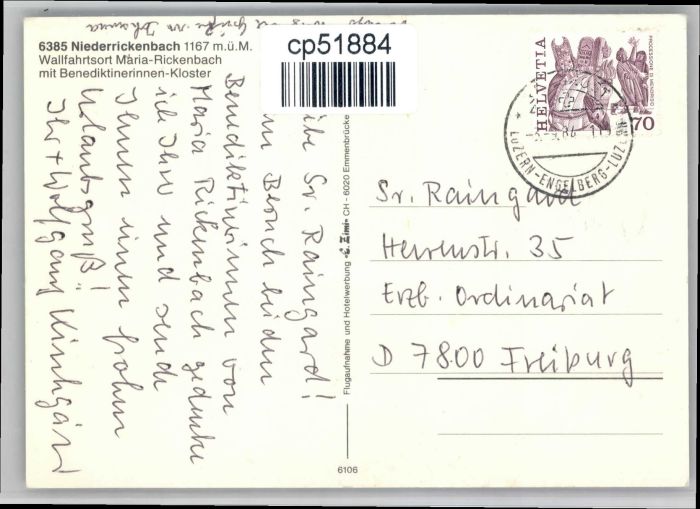 6385 Niederrickenbach 1167 m.ü.M.
Wallfahrtsort Maria-Rickenbach
mit Benediktinerinnen-Kloster
cp51884
Sr. Raingard!
Besuch bei den
Benediktinerinnen von
Maria Rickenbach gedenke
ich Ihrer und sende
Ihnen einen frohen
Urlaubsgruß!
Ihr Wolfgang Kirchgäss
Grüße von Johanna
Flugaufnahme und Hotelwerbung CH - 6020 Emmenbrücke
6106
HELVETIA
70
LUZERN-ENGELBERG-LUZERN
Sr. Raingard
Herrenstr. 35
Erzb. Ordinariat
D 7800 Freiburg